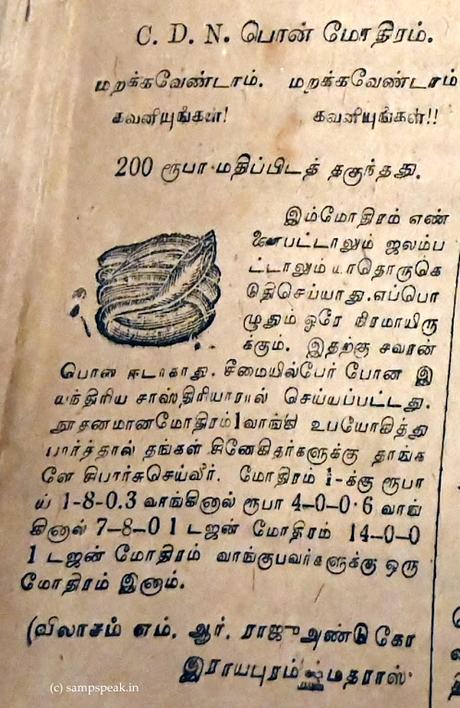 C. D. N. பொன் மோதிரம்.
மறக்கவேண்டாம். மறக்கவேண்டாம்
கவனியுங்கள்! கவனியுங்கள்!!
200 ரூபா மதிப்பிடத் தகுந்தது.
இம்மோதிரம் எண்
ணைபட்டாலும் ஜலம்ப
ட்டாலும் யாதொருகெ
டுதிசெய்யாது. எப்பொ
ழுதும் ஒரே சிரமாயிரு
க்கும். இதற்கு சவரன்
பொன் ஈடாகாது. சீமையில்பேர் போன இ
யந்திரிய சாஸ்திரியாரால் செய்யப்பட்டது.
நூதனமானமோதிரம் 1 வாங்கி உபயோகித்து
பார்த்தால் தங்கள் சினேகிதர்களுக்கு தாங்க
ளே சிபார்சுசெய்வீர். மோதிரம் 1-க்கு ரூபா
ய் 1-8-0.3 வாங்கினால் ரூபா 4-0-0·6 வாங்
கினால் 7-8-0 1 டஜன் மோதிரம் 14-0-0
1 டஜன் மோதிரம் வாங்குபவர்களுக்கு ஒரு
மோதிரம் இனாம்.
(விலாசம் எம். ஆர். ராஜு அண்டு கோ
இராயபுரம் மதராஸ்·
(c) sampspeak.in